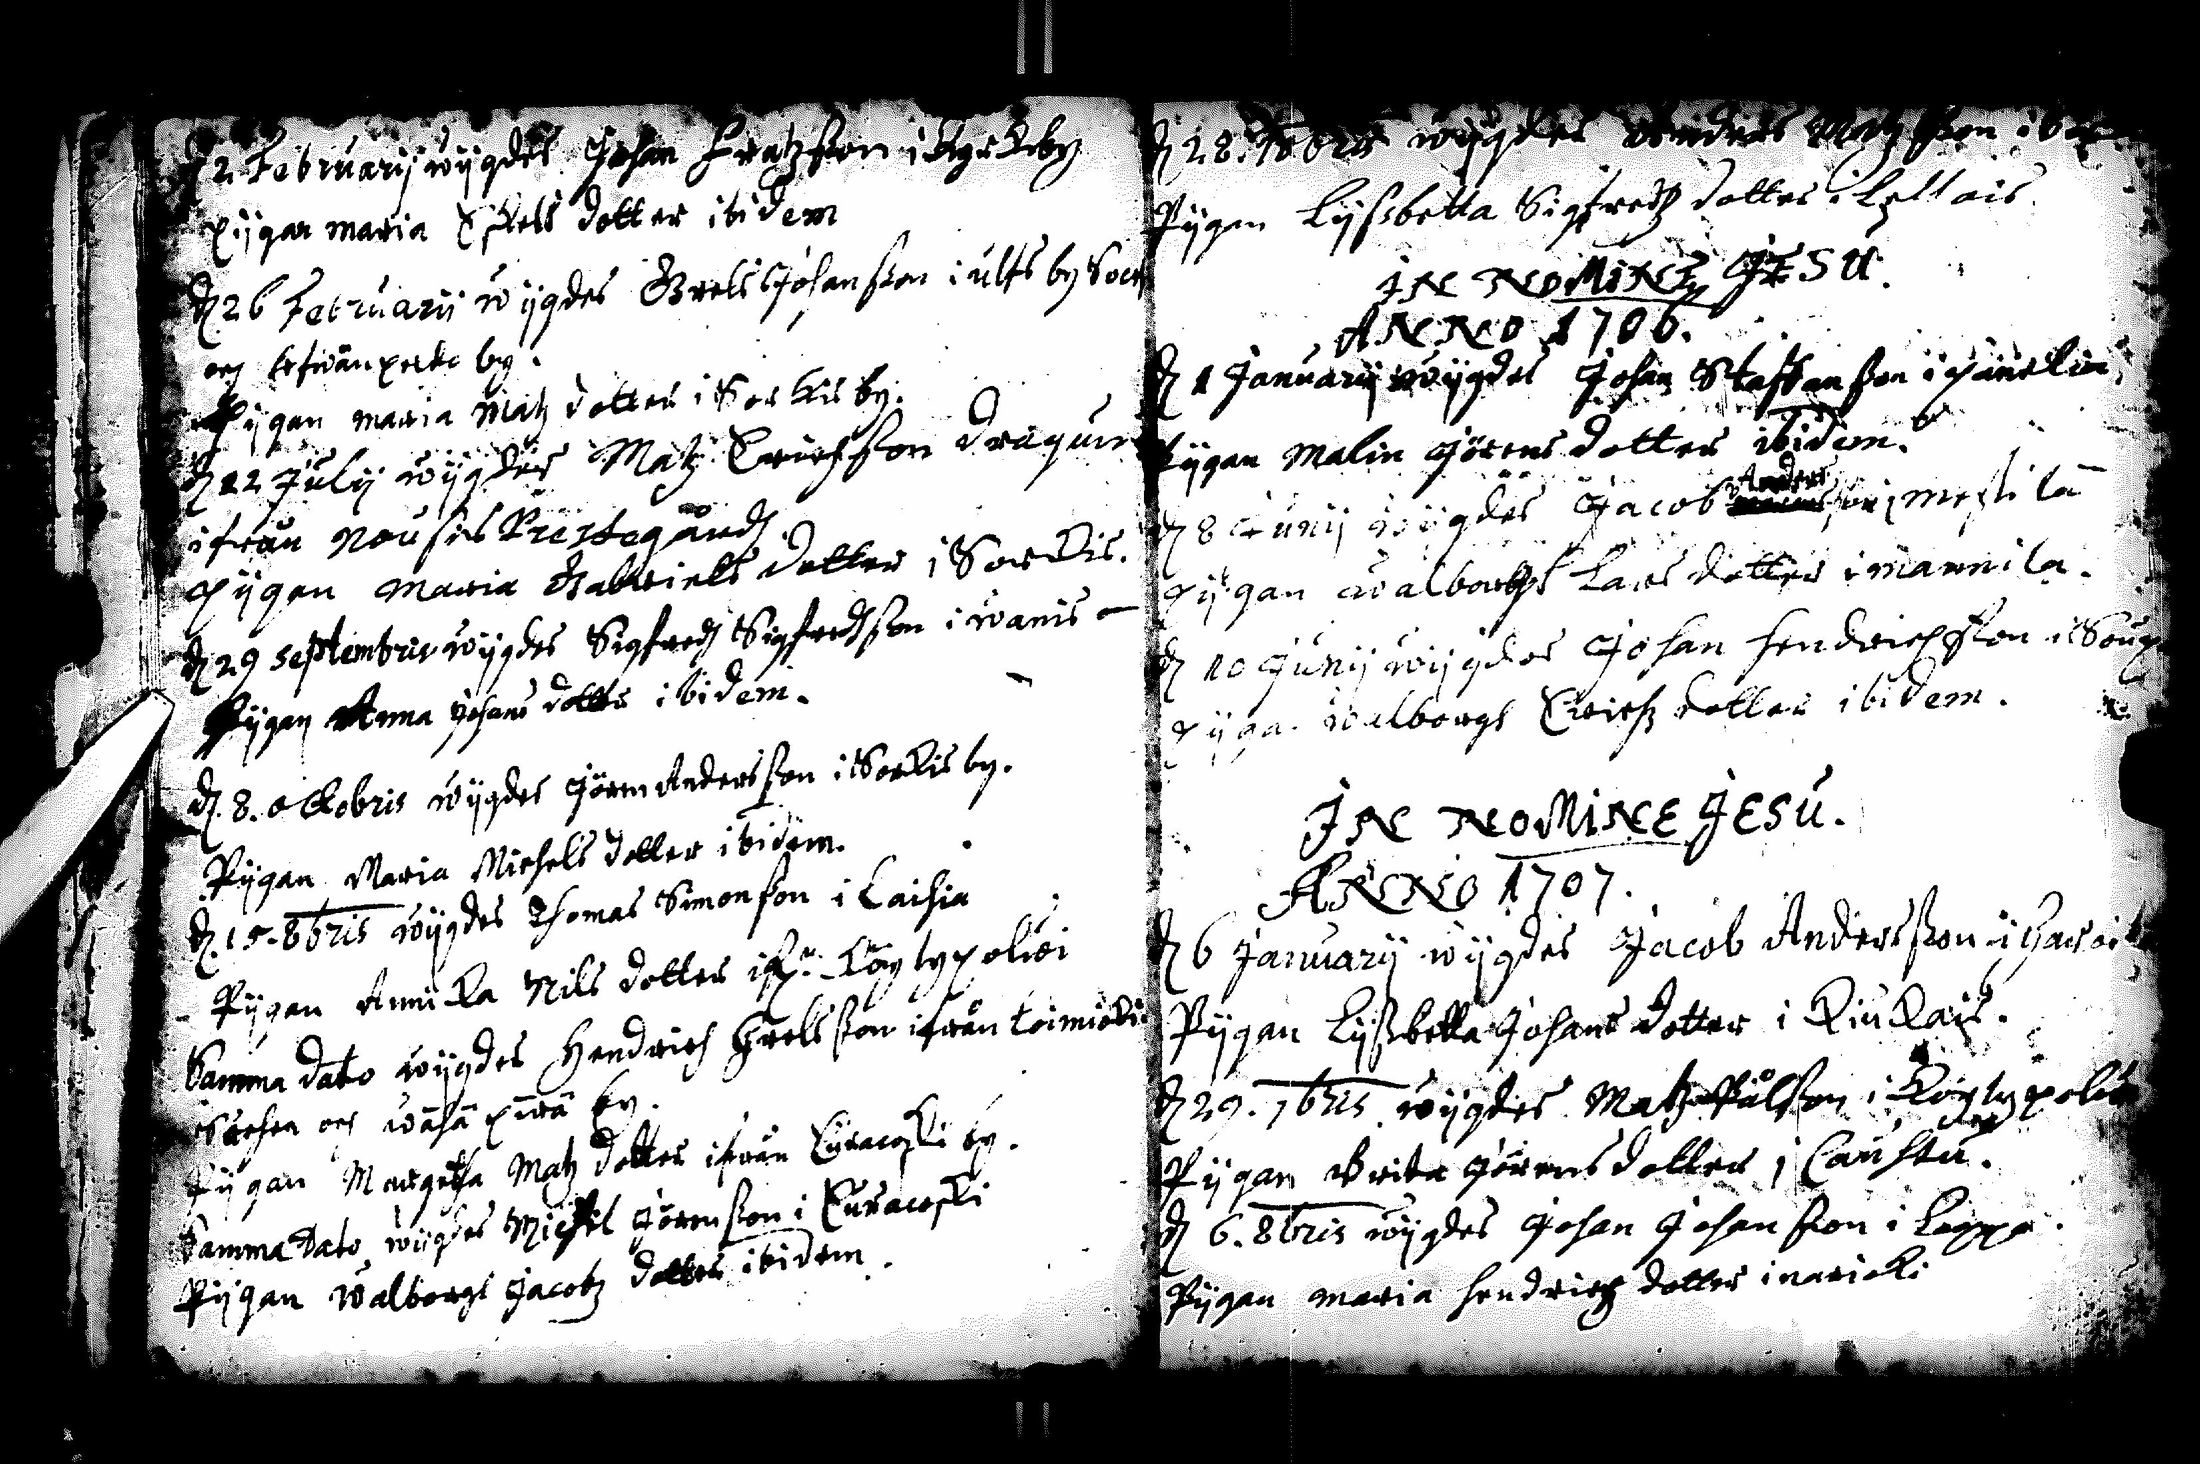 2 Februarij wijgdes Johan Fratzson i Kyrckby
Pijgan maria Eskels dotter ibidem
d 26 Februarij wijgdes Grels Johansson i ults by Sock
och by.
Pijgan maria Matz dotter i Sorkis by.
d 12 July wijgdes Matz Erichsson Dragun
ifrån Nousis Prestegård
Pijgan Maria Gabriels dotter i Sorkis.
d 29 Septembris wijgdes Sigfred Sigfredsson i wanis
Pijgan Anna Johans dotter ibidem.
d. 8. octobris wijgdes Jören Andersson i Sorkis by.
Pijgan Maria Michels dotter ibidem.
d. 15. 8bris wijgdes Thomas Simonsson i Laihia
Pijgan Annika Nils dotter Köylypolwi
Samma dato wijgdes Hendrich Grelsson ifrån toimioki
Sochen och by.
Pijgan Margetha Matz dotter ifrån Euracoski by.
Samma Dato wijgdes Michil Jörensson i Euracoski
Pijgan Walborgs Jacobz dotter ibidem.
d 28. wijgdes Anders Matzson i
Pijgan Lijsbetta Sigfredz dotter i
IN NOMINE JESU.
ANNO 1706.
d 1 Januarij wijgdes Johan Staffansson i
Pijgan Malin Jörens dotter ibidem.
d 8 Junij wijgdes Jacob Andersson i mestilä
Pijgan walborgs Lars dotter i mannila.
d 10 Junij wijgdes Johan Hendrichsson i
Pijgan Walborgs Erichz dotter ibidem.
IN NOMINE JESU.
ANNO 1707.
d 6 Januarij wijgdes Jacob Andersson i
Pijgan Lijsbetta Johans dotter i Kiukais.
d 29. 7bris wijgdes Matz Pålsson i Köylypolwi
Pijgan Brita Jörens dotter i Caustu.
d 6. 8bris wijgdes Johan Johansson i Leppä.
Pijgan maria Hendrichz dotter i